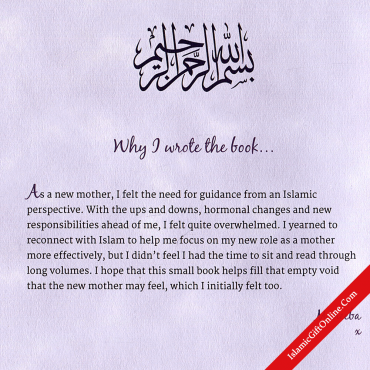 بسم الله الرحمن الرحيم
Why I wrote the book...
As a new mother, I felt the need for guidance from an Islamic
perspective. With the ups and downs, hormonal changes and new
responsibilities ahead of me, I felt quite overwhelmed. I yearned to
reconnect with Islam to help me focus on my new role as a mother
more effectively, but I didn't feel I had the time to sit and read through
long volumes. I hope that this small book helps fill that empty void
that the new mother may feel, which I initially felt too.
x
IslamicGiftOnline.Com